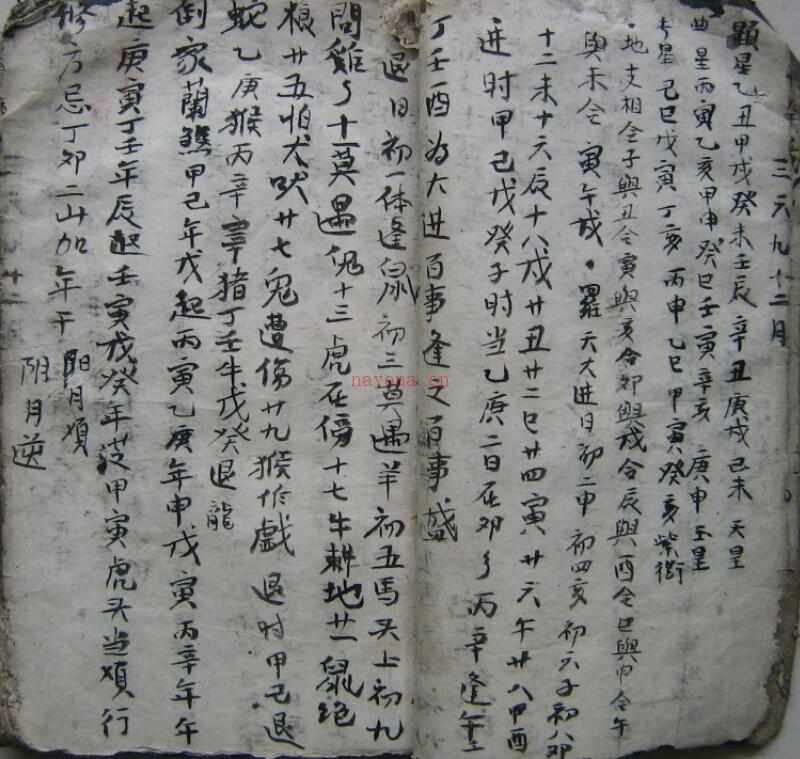 三六九十二月
顯星乙丑甲戌癸未壬辰辛丑庚戌己未天皇
曲星丙寅乙亥甲申癸巳壬寅辛亥庚申玉皇
己巳戊寅丁亥丙申乙巳甲寅癸亥紫
地支相合子與丑合寅與亥合卯與戌合辰與酉合巳與申合午
與未合寅午戌羅天大進日初二申初四亥初六子初八卯
十二未十六辰十八戌廿丑廿二巳廿四寅廿六午廿八甲酉
進时甲己戊癸子时当乙庚二日在卯丙辛逢午
丁壬酉為大進百事逢之百事盛
退日初一体逢鼠初三莫遇羊初五馬头上初九
問雞十一莫遇兔十三虎在傍十七牛耕地廿一鼠絶
粮廿五怕犬吠廿七兔遭傷廿九猴作戲退时甲己退
蛇乙庚猴丙辛猪丁壬牛戊癸退龍
倒家蘭煞甲己年戌起丙寅乙庚年申戊寅丙辛年午
起庚寅丁壬年辰起壬寅戊癸年甲寅虎头当順行
修方忌丁卯二山加年干
陽月順
阴月逆
nayona.cn